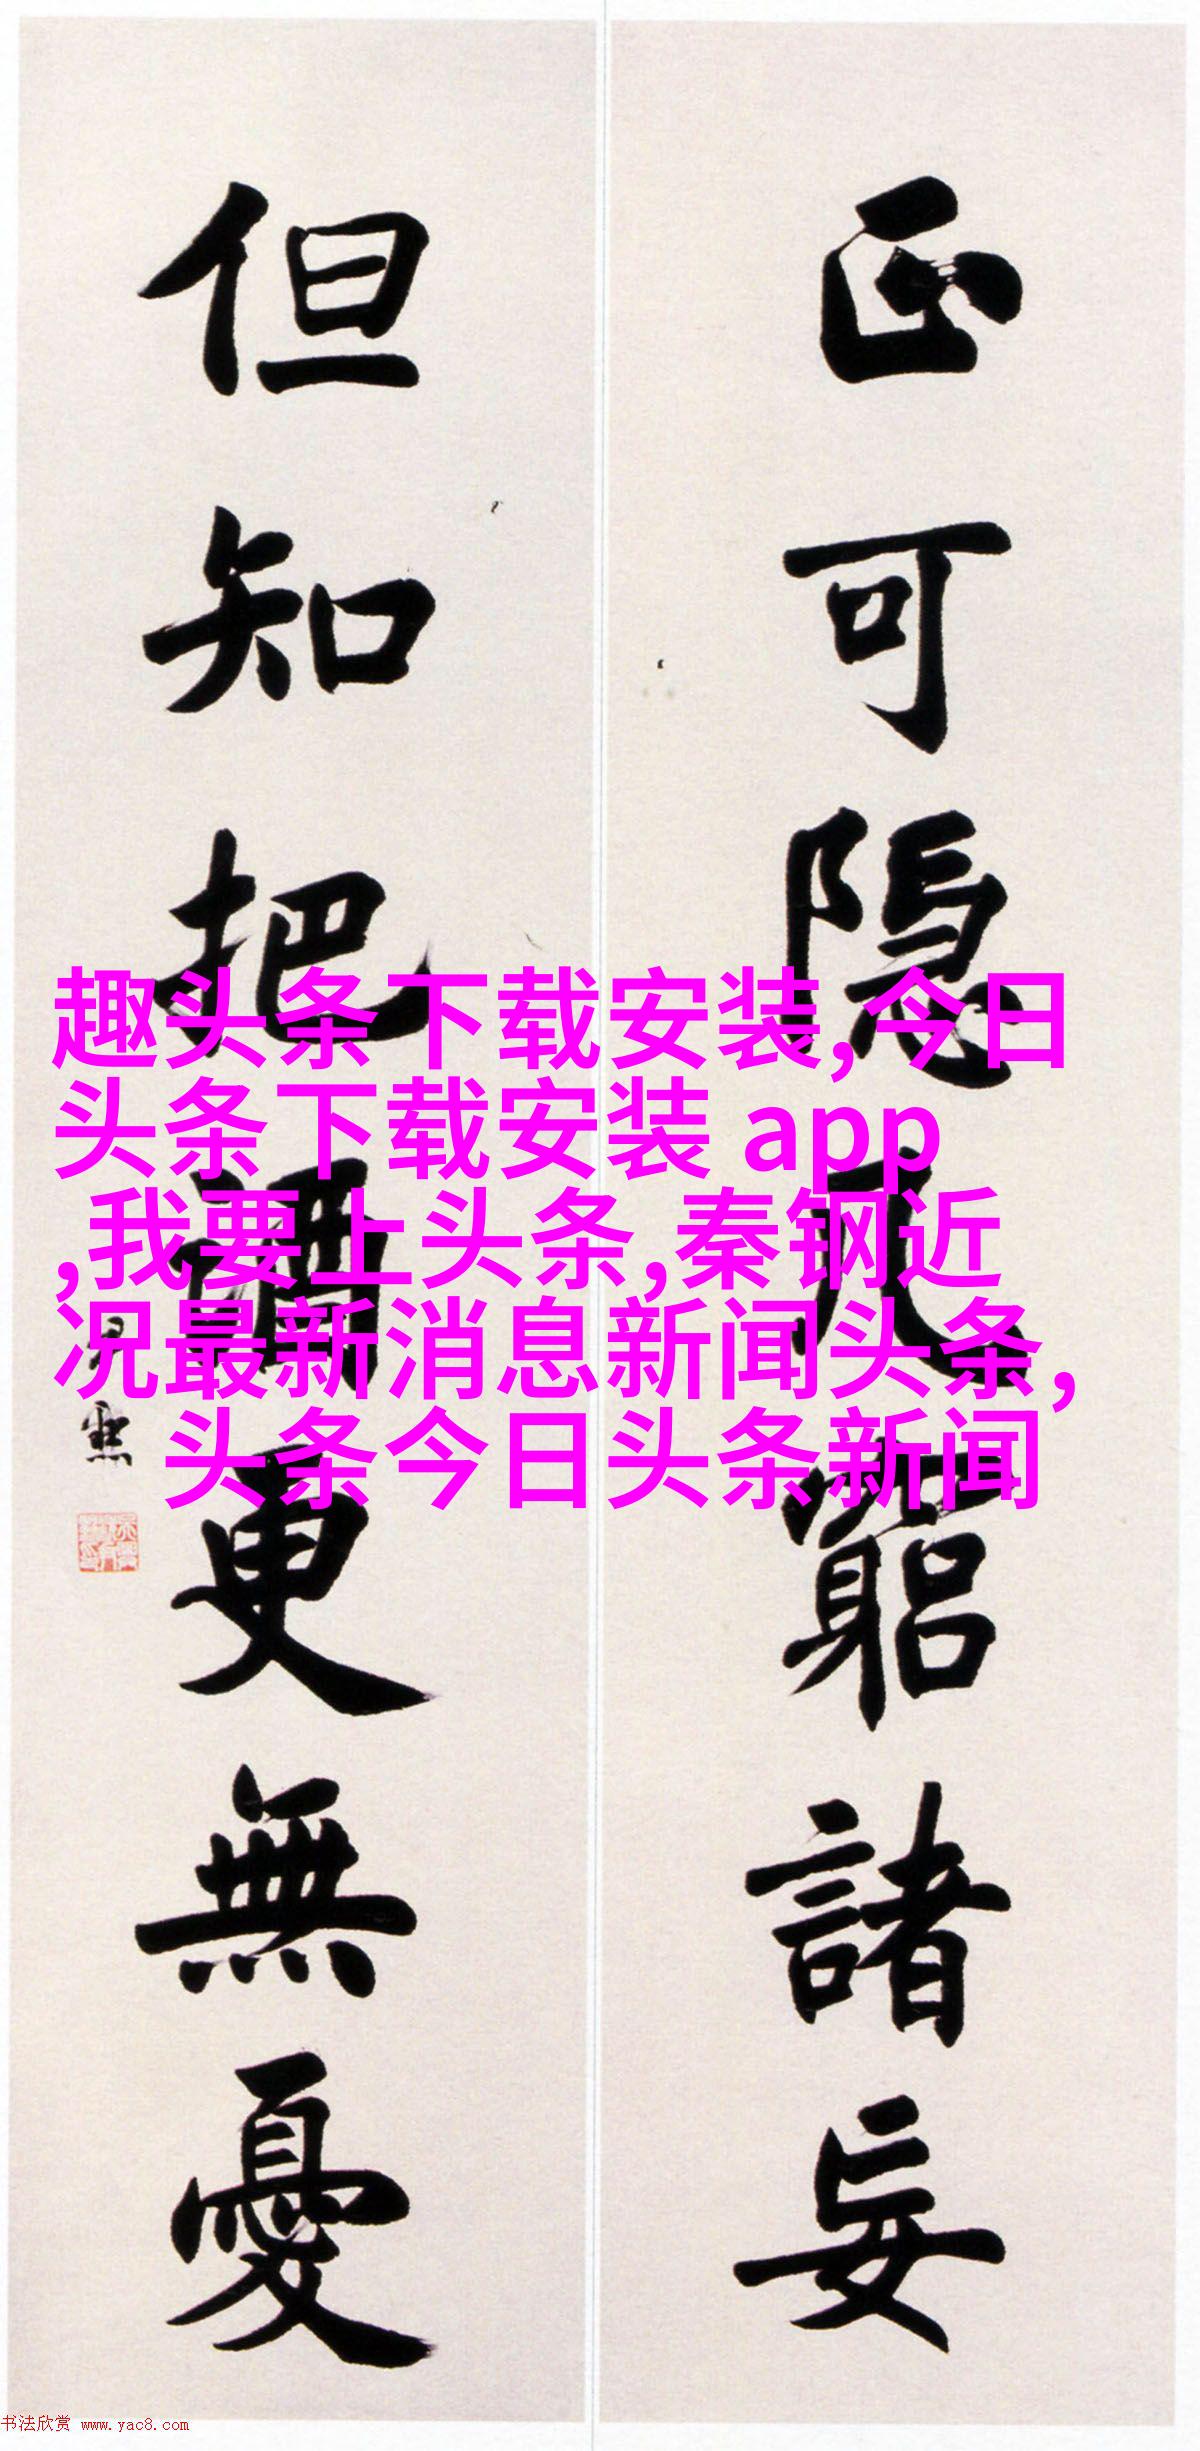 正可隱几窮諸妄
但知把酒更無憂
趣头条下载安装,今日
头条下载安装 app
,我要上头条,秦钢近
况最新消息新闻头条,
头条今日头条新闻
书法欣赏 www.yac8.com